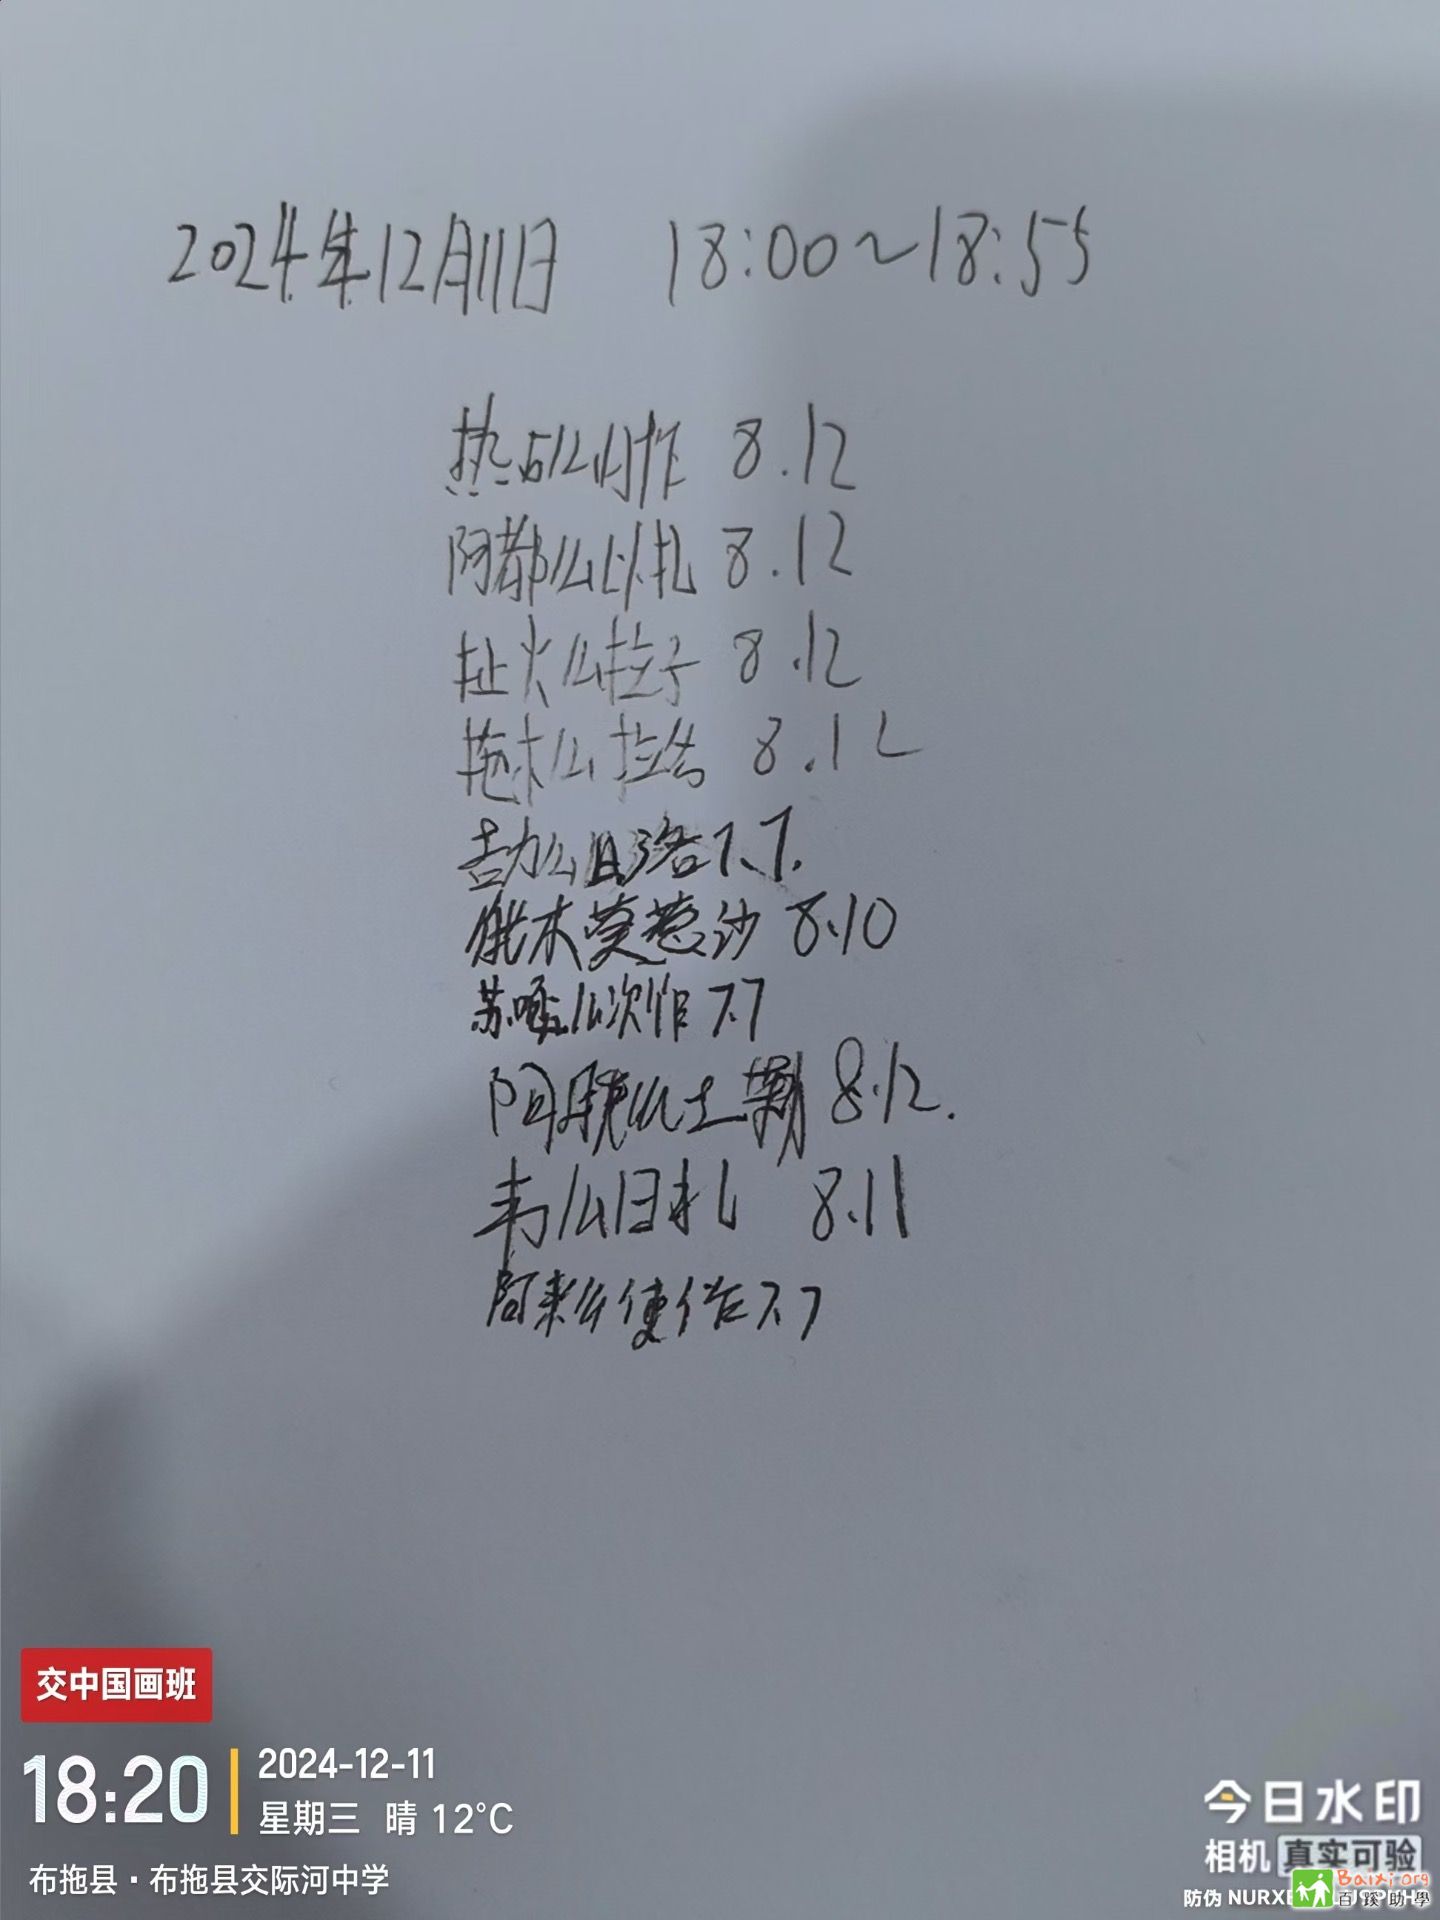 2024年12月11日 18:00~18:55
热石么小作 8.12
阿都么以扎 8.12
扯火么拉子 8.12
拖木么拉 8.12
吉力么日洛 7.7.
俄木莫惹沙 8.10
苏嘎么次作 7.7
阿 么土 8.12.
韦么日扎 8.11
阿来么使作 7.7
交中国画班
18:20
2024-12-11
星期三 晴 12°C
布拖县·布拖县交际河中学
今日水印
相机 真实可验
防伪 NURXE
Baixi.org
百蹊助學